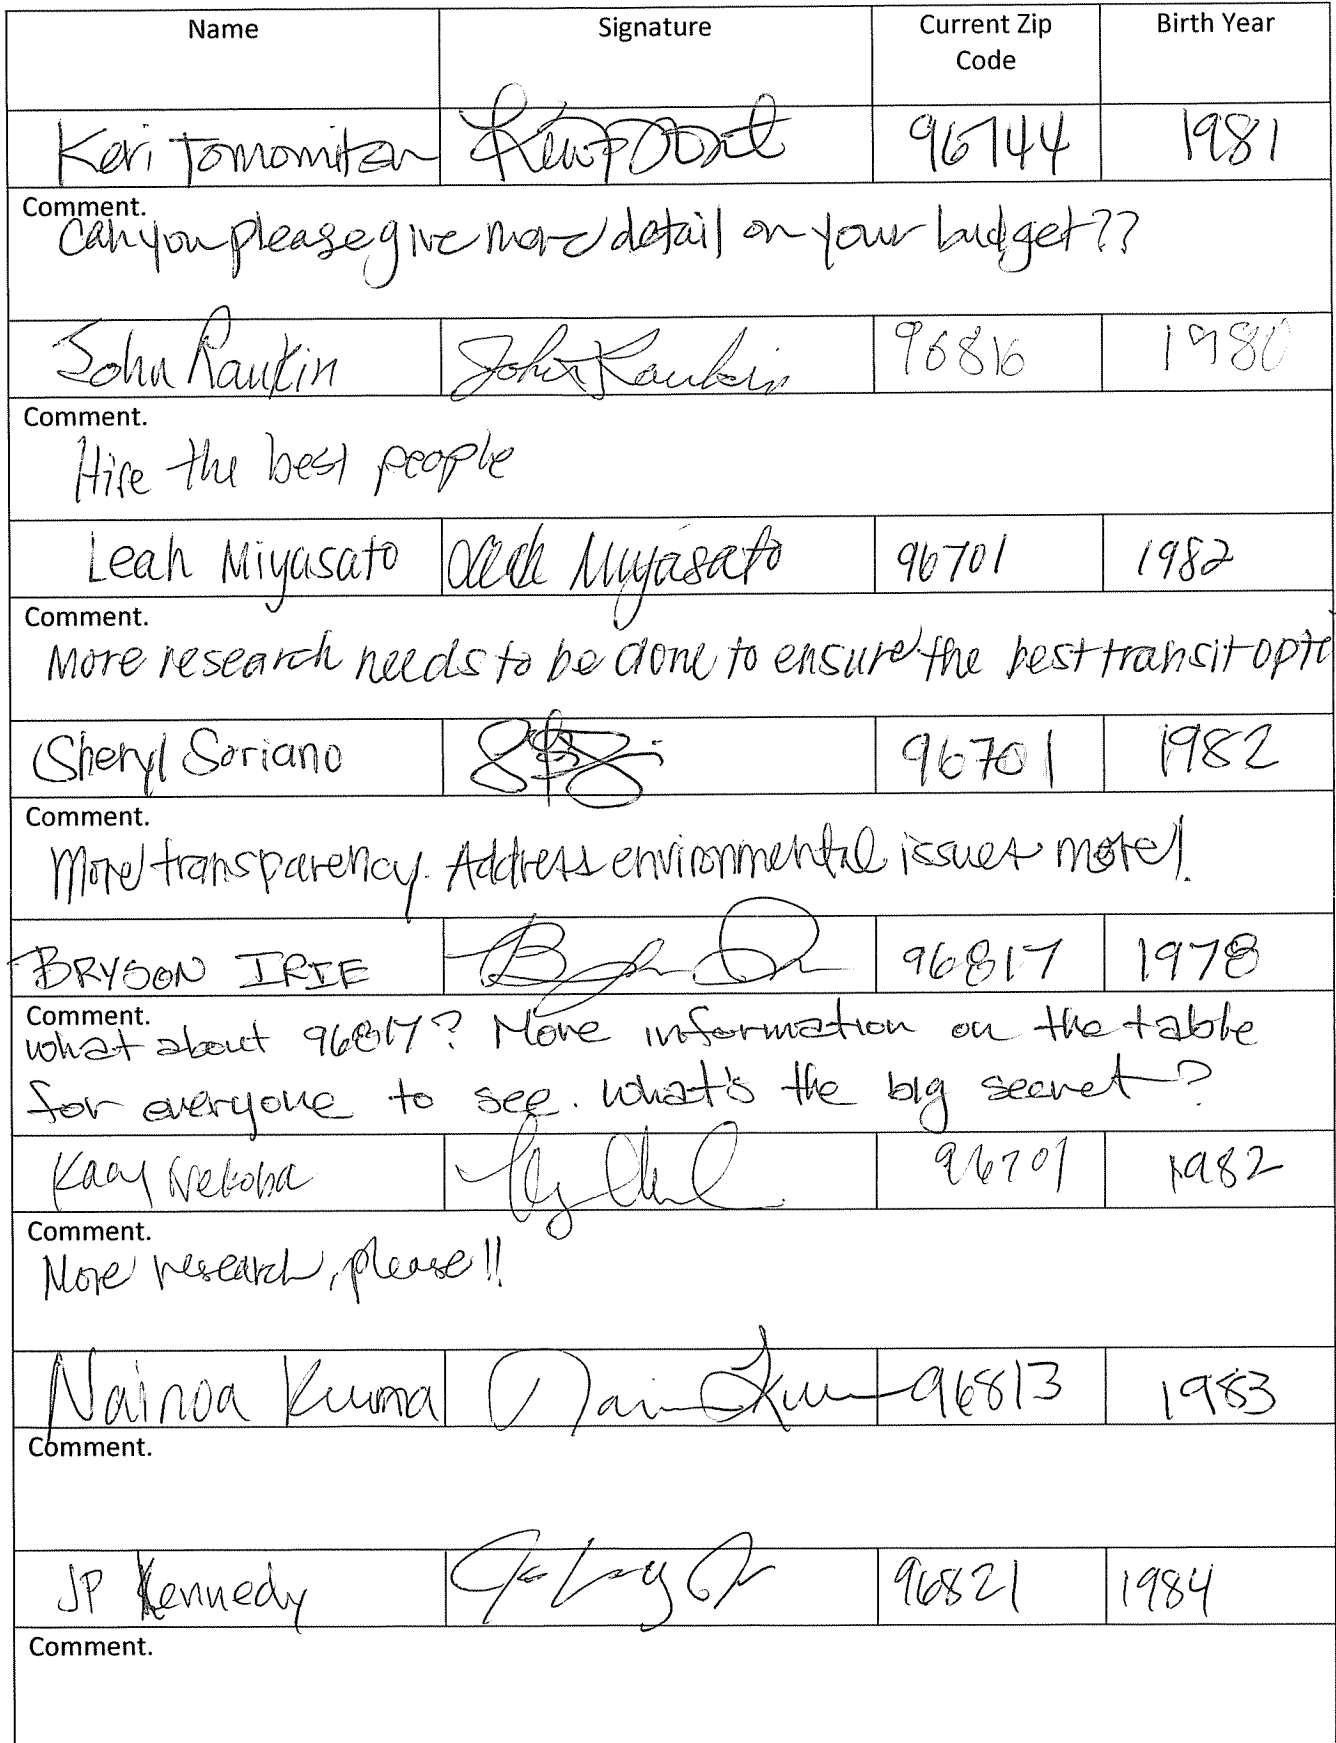 Name Signature Current Zip Code Birth Year
Keri Tomomitsu 96744 1981
Comment.
Can you please give more detail on your budget??
John Rankin John Rankin 96816 1980
Comment.
Hire the best people
Leah Miyasato Leah Miyasato 96701 1982
Comment.
More research needs to be done to ensure the best transit opti
Sheryl Soriano 96701 1982
Comment.
More transparency. Address environmental issues more!
BRYSON IRIE 96817 1978
Comment.
What about 96817? More information on the table
for everyone to see. What's the big secret?
Kacy Nekoba 96701 1982
Comment.
More research, please!!
Nainoa Kuma 96813 1983
Comment.
JP Kennedy 96821 1984
Comment.